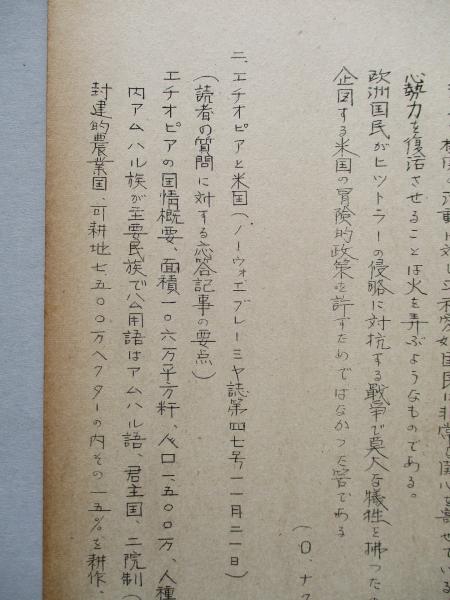 動に対し平和愛好国民に非常な関心を寄せている
心勢力を復活させることは火を弄ぶようなものである。
欧洲国民がヒットラーの侵略に対抗する戦争で莫大な犠牲を拂つた
企図する米国の冒険的政策を許すためではなかつた筈である
(O.ナ
二、エチオピアと米国(ノーウォエ・ブレーミヤ誌第四七号一一月二一日)
(読者の質問に対する応答記事の要点)
エチオピアの国情概要、面積一〇六万平方粁、人口一、五〇〇万、人種
内アムハル族が主要民族で公用語はアムハル語、君主国、二院制(
封建的農業国、可耕地七、五〇〇万ヘクターの内その一五%を耕作、